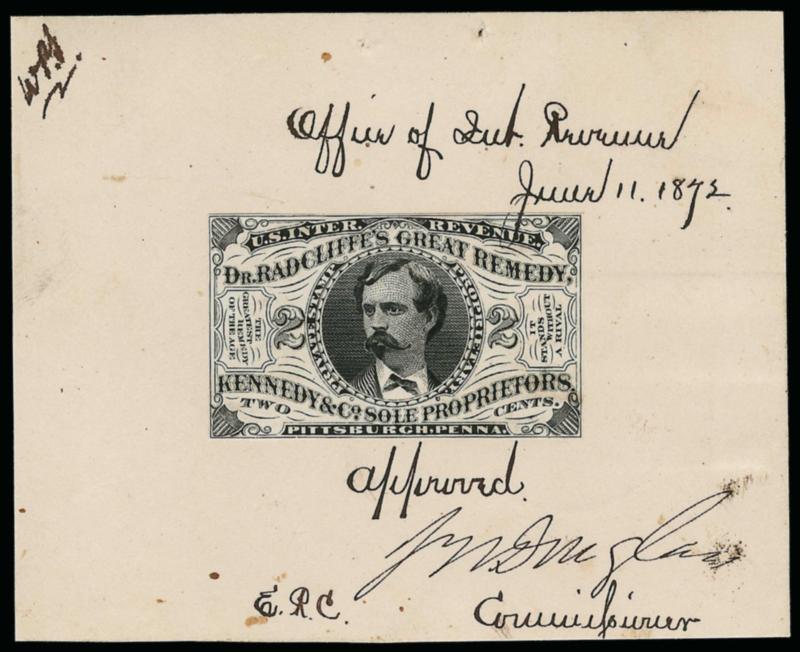 Office of Int. Revenue
June 11. 1872.
U.S. INTER. REVENUE.
DR. RADCLIFFE'S GREAT REMEDY,
PRIVATE STAMP PROPRIETARY
THE GREATEST REMEDY OF THE AGE
2
2
IT STANDS WITHOUT A RIVAL
KENNEDY & CO. SOLE PROPRIETORS,
TWO CENTS.
PITTSBURGH. PENNA.
Approved.
J W Douglass
E.R.C.
Commissioner